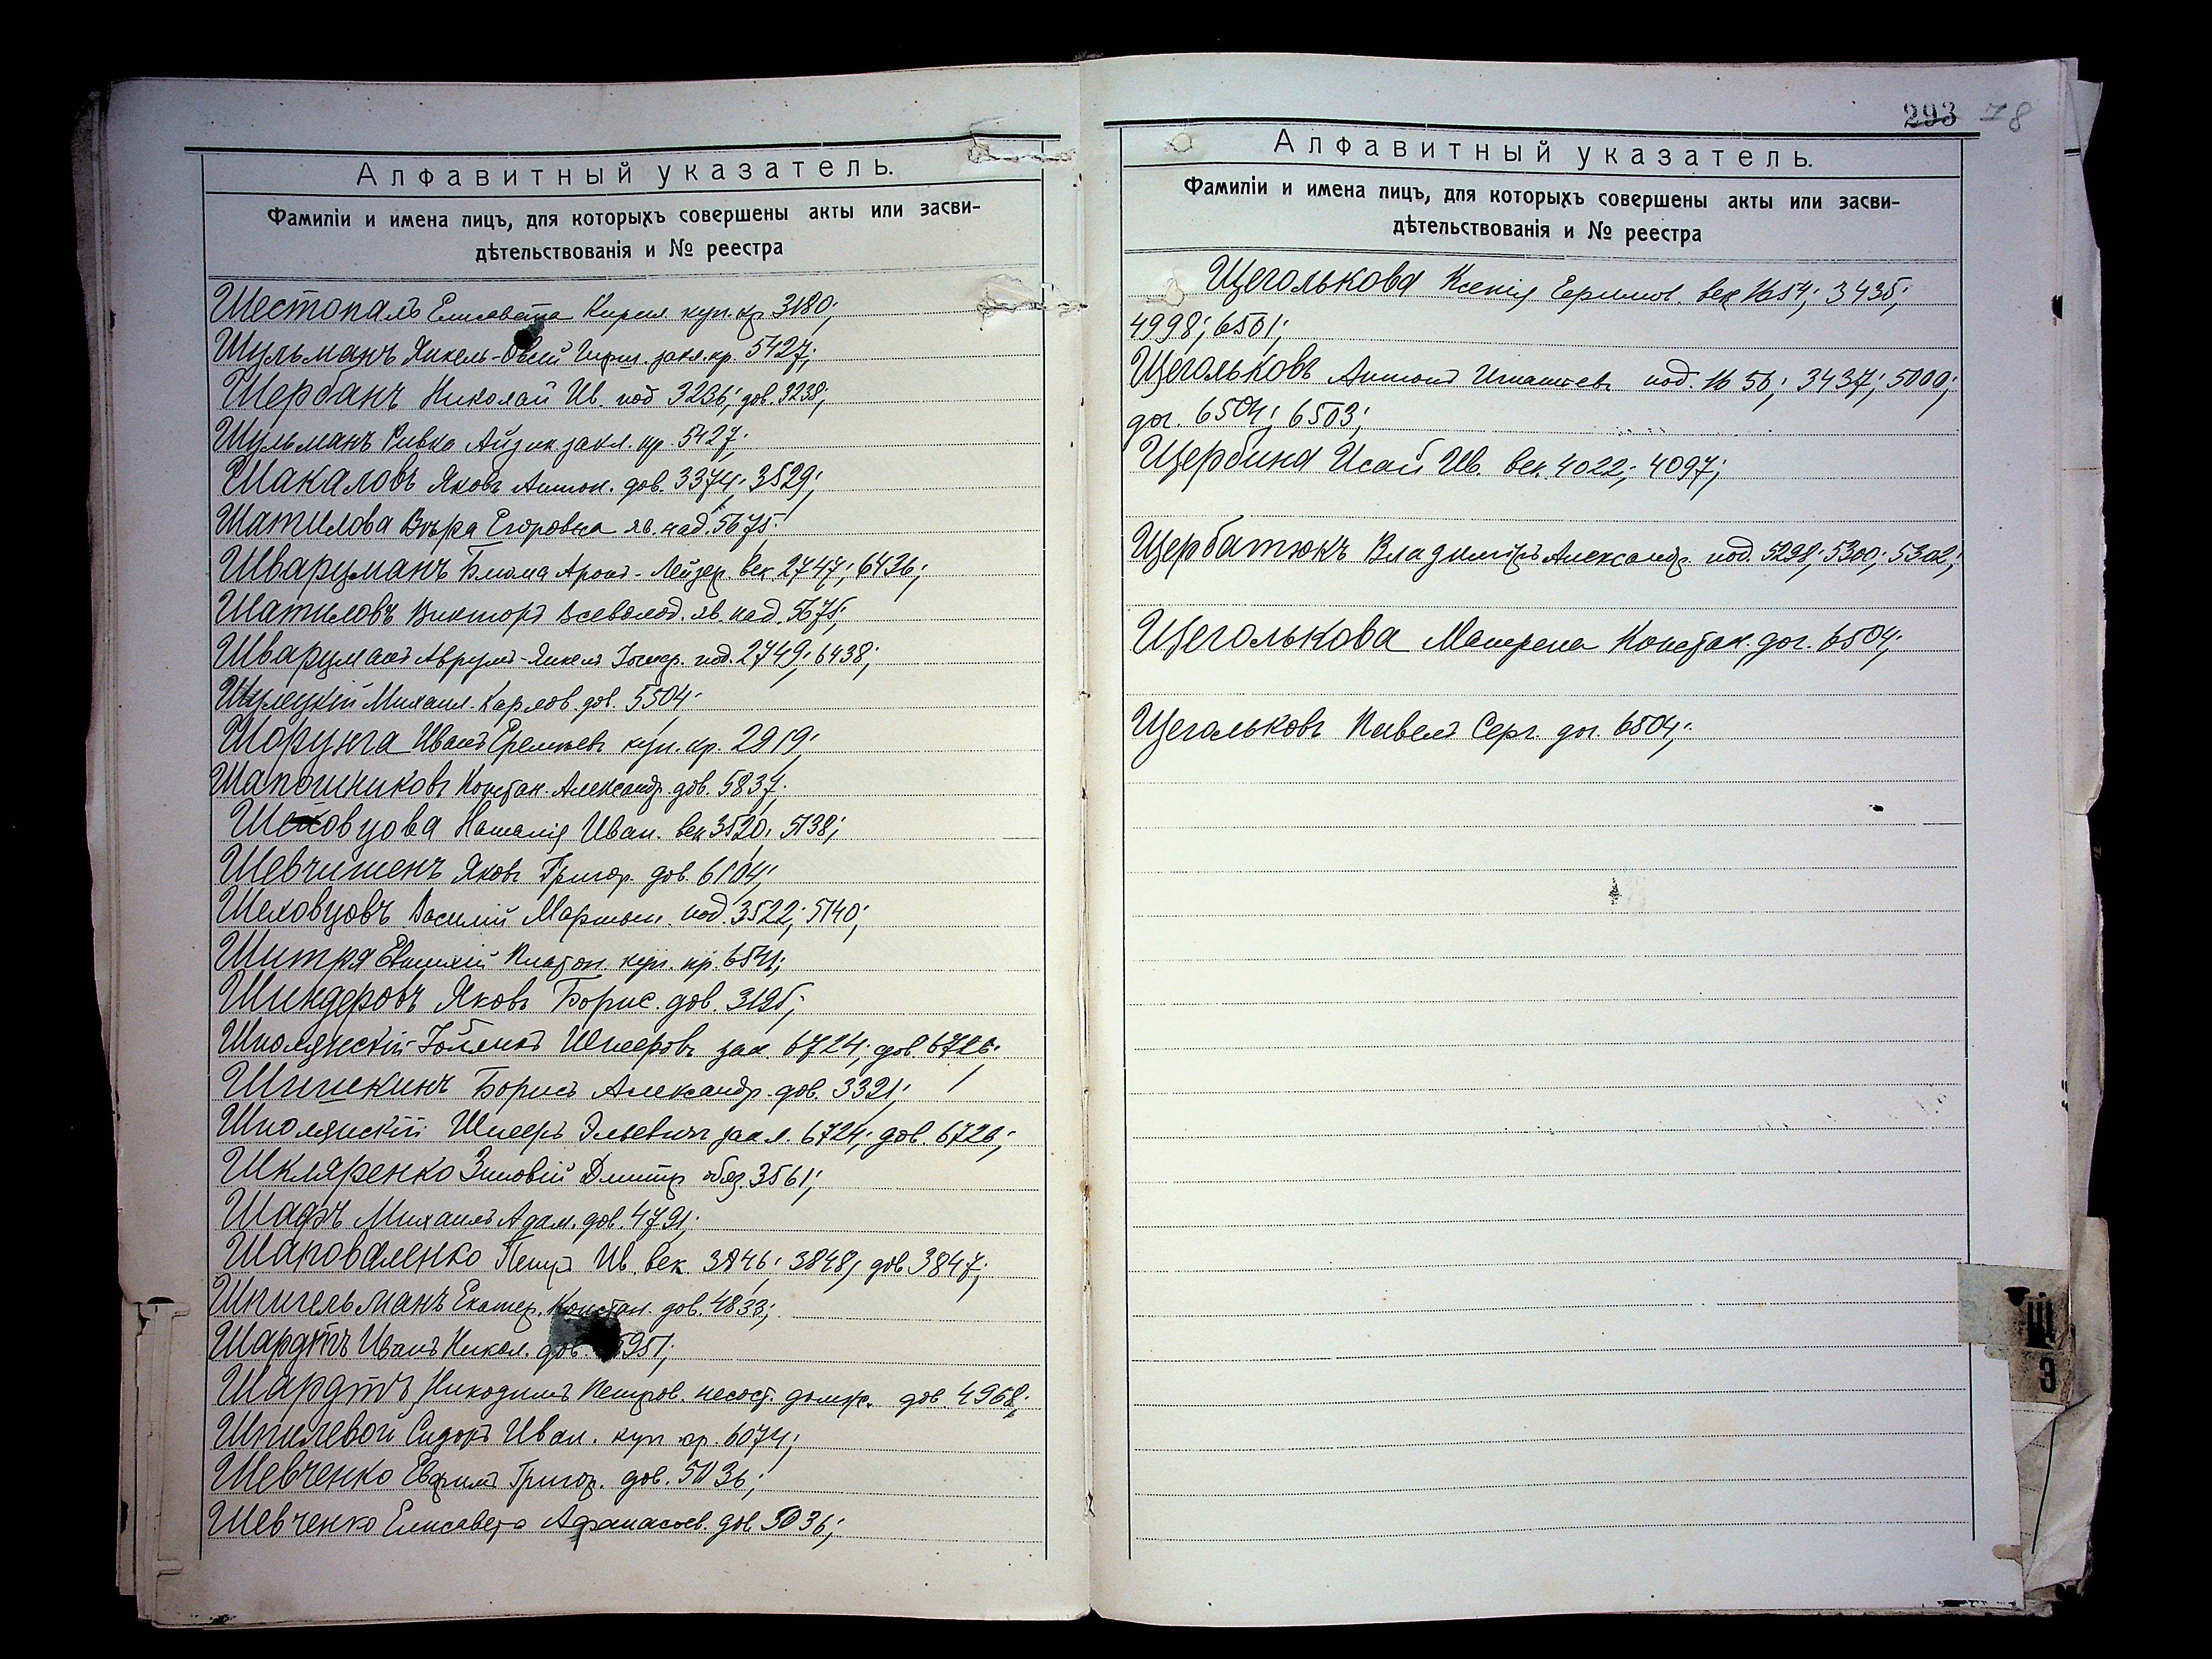 Алфавитный указатель.
Фамиліи и имена лицъ, для которыхъ совершены акты или засви-
дѣтельствованія и № реестра
Шестопалъ Елисавета Кирил. куп. кр. 3180;
Шульманъ Янкель-Овсей Герш. закл. кр. 5427;
Шербанъ Николай Ив. под 3236; дов. 3238;
Шульманъ Ривка Айзик закл. кр. 5427;
Шакаловъ Яковъ Антон. дов. 3374; 3529;
Шатилова Вѣра Егоровна яв. над. 5675.
Шварцманъ Блюма Аронъ-Лейзер. век. 2747; 6436;
Шатиловъ Викторъ Всеволод. яв. над. 5675;
Шварцманъ Аврумъ-Янкель под. 2749; 6438;
Шулецкій Михаил. Карлов. дов. 5504;
Шорунга Иванъ Еремѣевъ куп. кр. 2919;
Шапошниковъ Констан. Александр. дов. 5837;
Шеховцова Наталія Иван. век 3520; 5138;
Шевчишенъ Яковъ Григор. дов. 6104;
Шеховцовъ Василій Мартын. под. 3522; 5140;
Шитря Евтихій Платон. куп. кр. 6541;
Шиндеровъ Яковъ Борис. дов. 3195;
Шполянскій Шмееровъ зак. 6724; дов. 6726;
Шишкинъ Борисъ Александр. дов. 3321;
Шполянскій Шмееръ Эльевичъ закл. 6724; дов. 6726;
Шкляренко Зиновій Дмитр обяз. 3561;
Шафъ Михаилъ Адам. дов. 4791;
Шаповаленко Петръ Ив. век. 3846; 3848; дов 3847;
Шпигельманъ Екатер. Констан. дов. 4833;
Шардтъ Иванъ Никол. дов. 5951;
Шардтъ Никодимъ Петров. несост. долж. дов. 4968;
Шпилевой Сидоръ Иван. куп кр. 6074;
Шевченко Евфимъ Григор. дов. 5036;
Шевченко Елисавета Афанасьев. дов 5036;
293 78
Алфавитный указатель.
Фамиліи и имена лицъ, для которыхъ совершены акты или засви-
дѣтельствованія и № реестра
Щеголькова Ксенія Ефимов. век 1654; 3435;
4998; 6501;
Щегольковъ Антонъ Игнатьев. под. 1656; 3437; 5000;
дог. 6504; 6503;
Щербина Исай Ив. век. 4022; 4097;
Щербатюкъ Владиміръ Александр. под. 5298; 5300; 5302;
Щеголькова Матрена Констан. дог. 6504;
Щегольковъ Павелъ Серг. дог. 6504;
Щ
Э